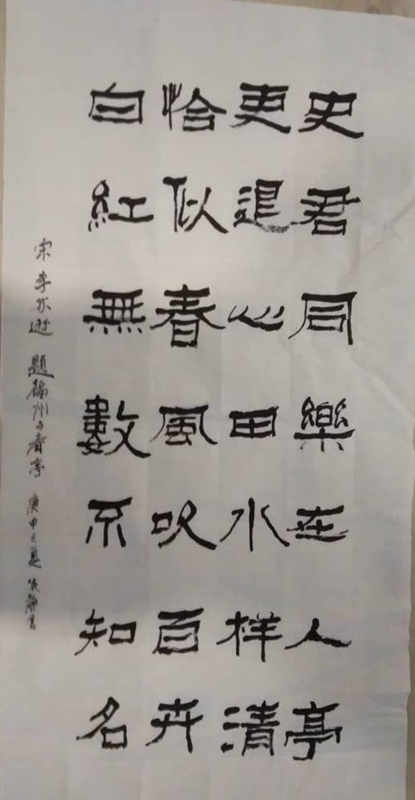 史君同樂在人亭
更退心田水样清
恰似春風吹百卉
白紅無數不知名
宋 李不逊 題 州 香亭 庚申之夏